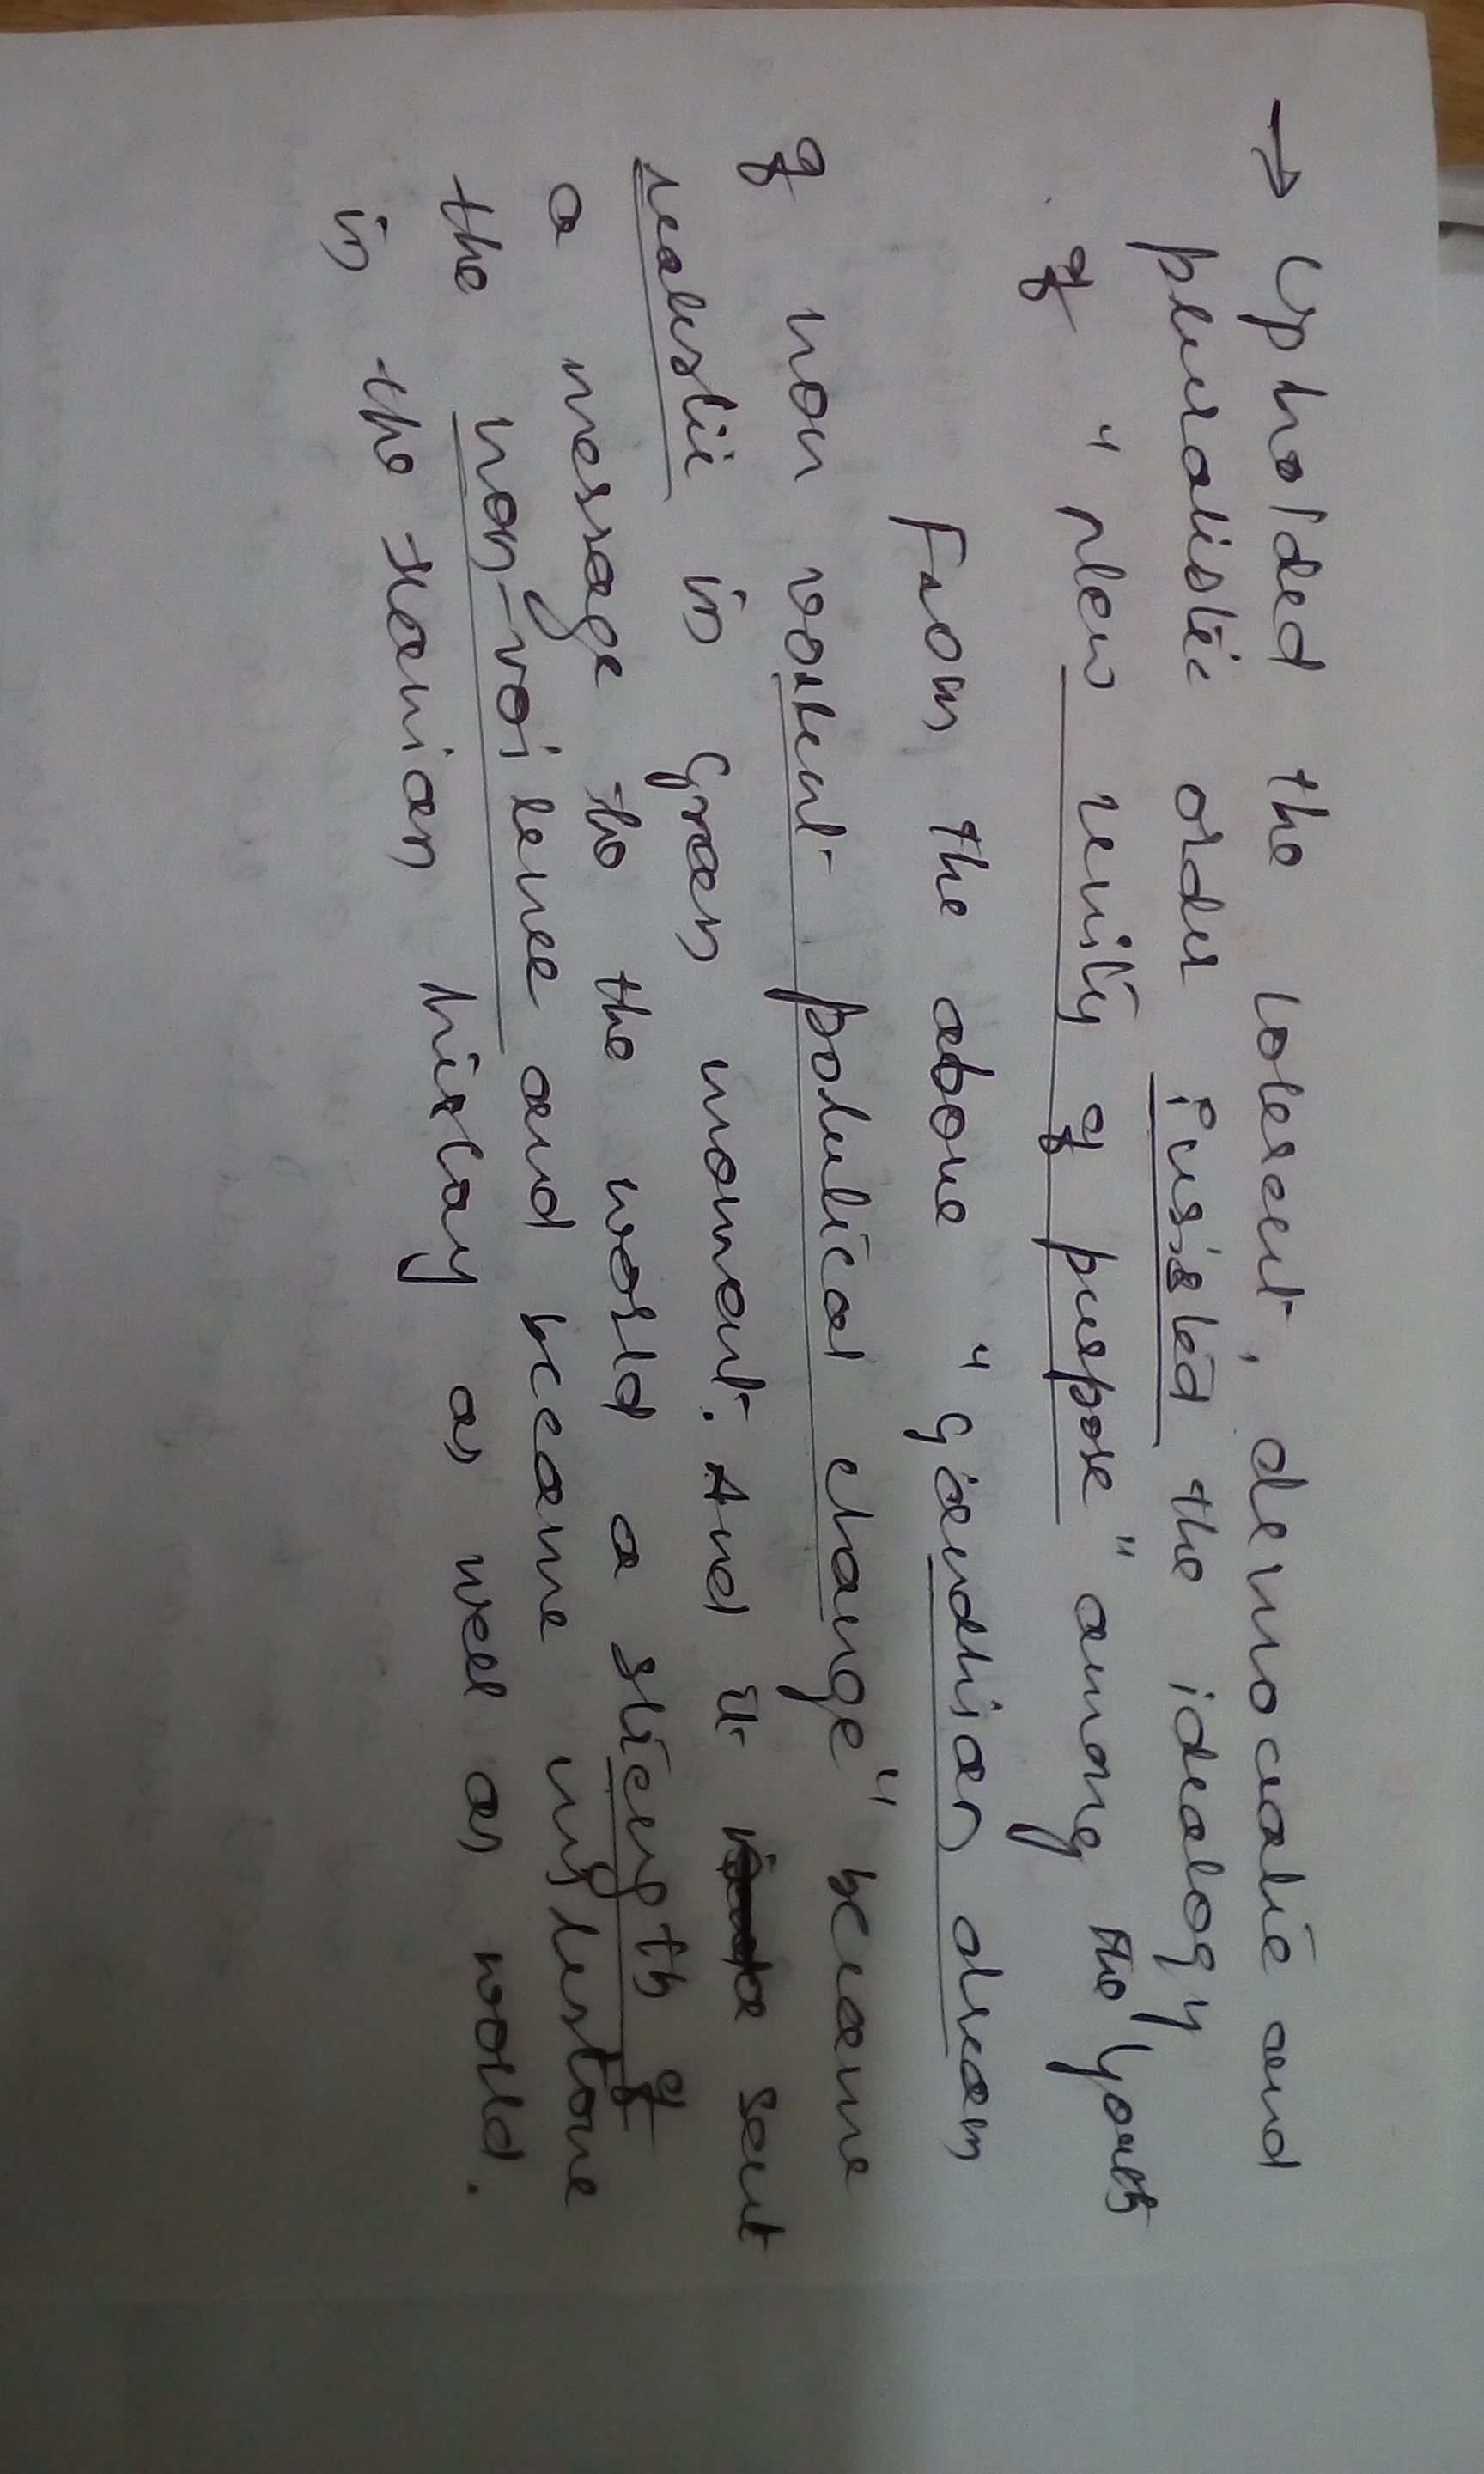 → Upholded the tolerent, democratic and
pluralistic order Pursisted the idealogy
of "New unity of purpose" among the youth
From the above "Gandhian dream
of non voilent political change" became
realistic in Green movement. And it sent
a message to the world a strength of
the non-voilence and became mylestone
in the iranian history as well as world.